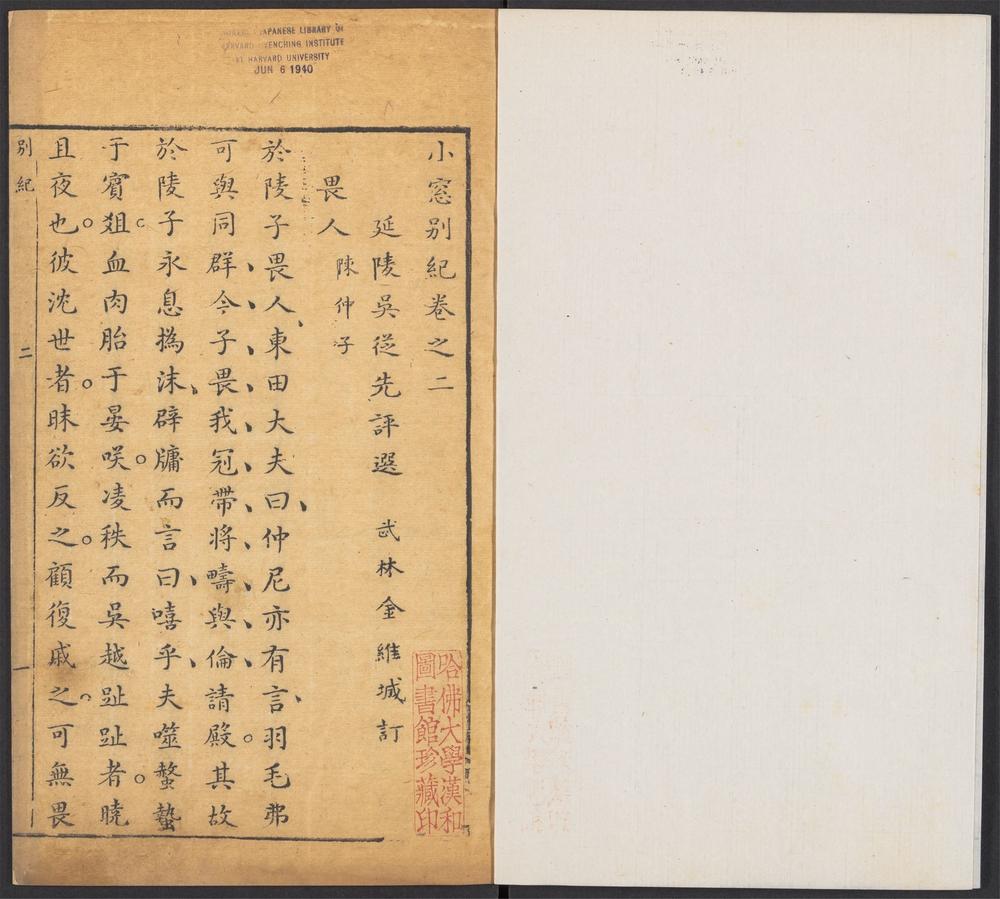 小窓别紀卷之二
延陵吳從先評選 武林金維城訂
畏人 陳仲子
於陵子畏人東田大夫曰仲尼亦有言羽毛弗
可與同群今子畏我冠帶將疇與倫請殿其故
於陵子永息撝沫辟牗而言曰嘻乎夫噬螫蟄
于賓爼血肉胎于晏咲凌秩而吳越趾趾者曉
且夜也彼沈世者眛欲反之顧復戚之可無畏
别紀
二
一
JAPANESE LIBRARY OF
HARVARD YENCHING INSTITUTE
AT HARVARD UNIVERSITY
JUN 6 1940
哈佛大學漢和
圖書館珍藏印